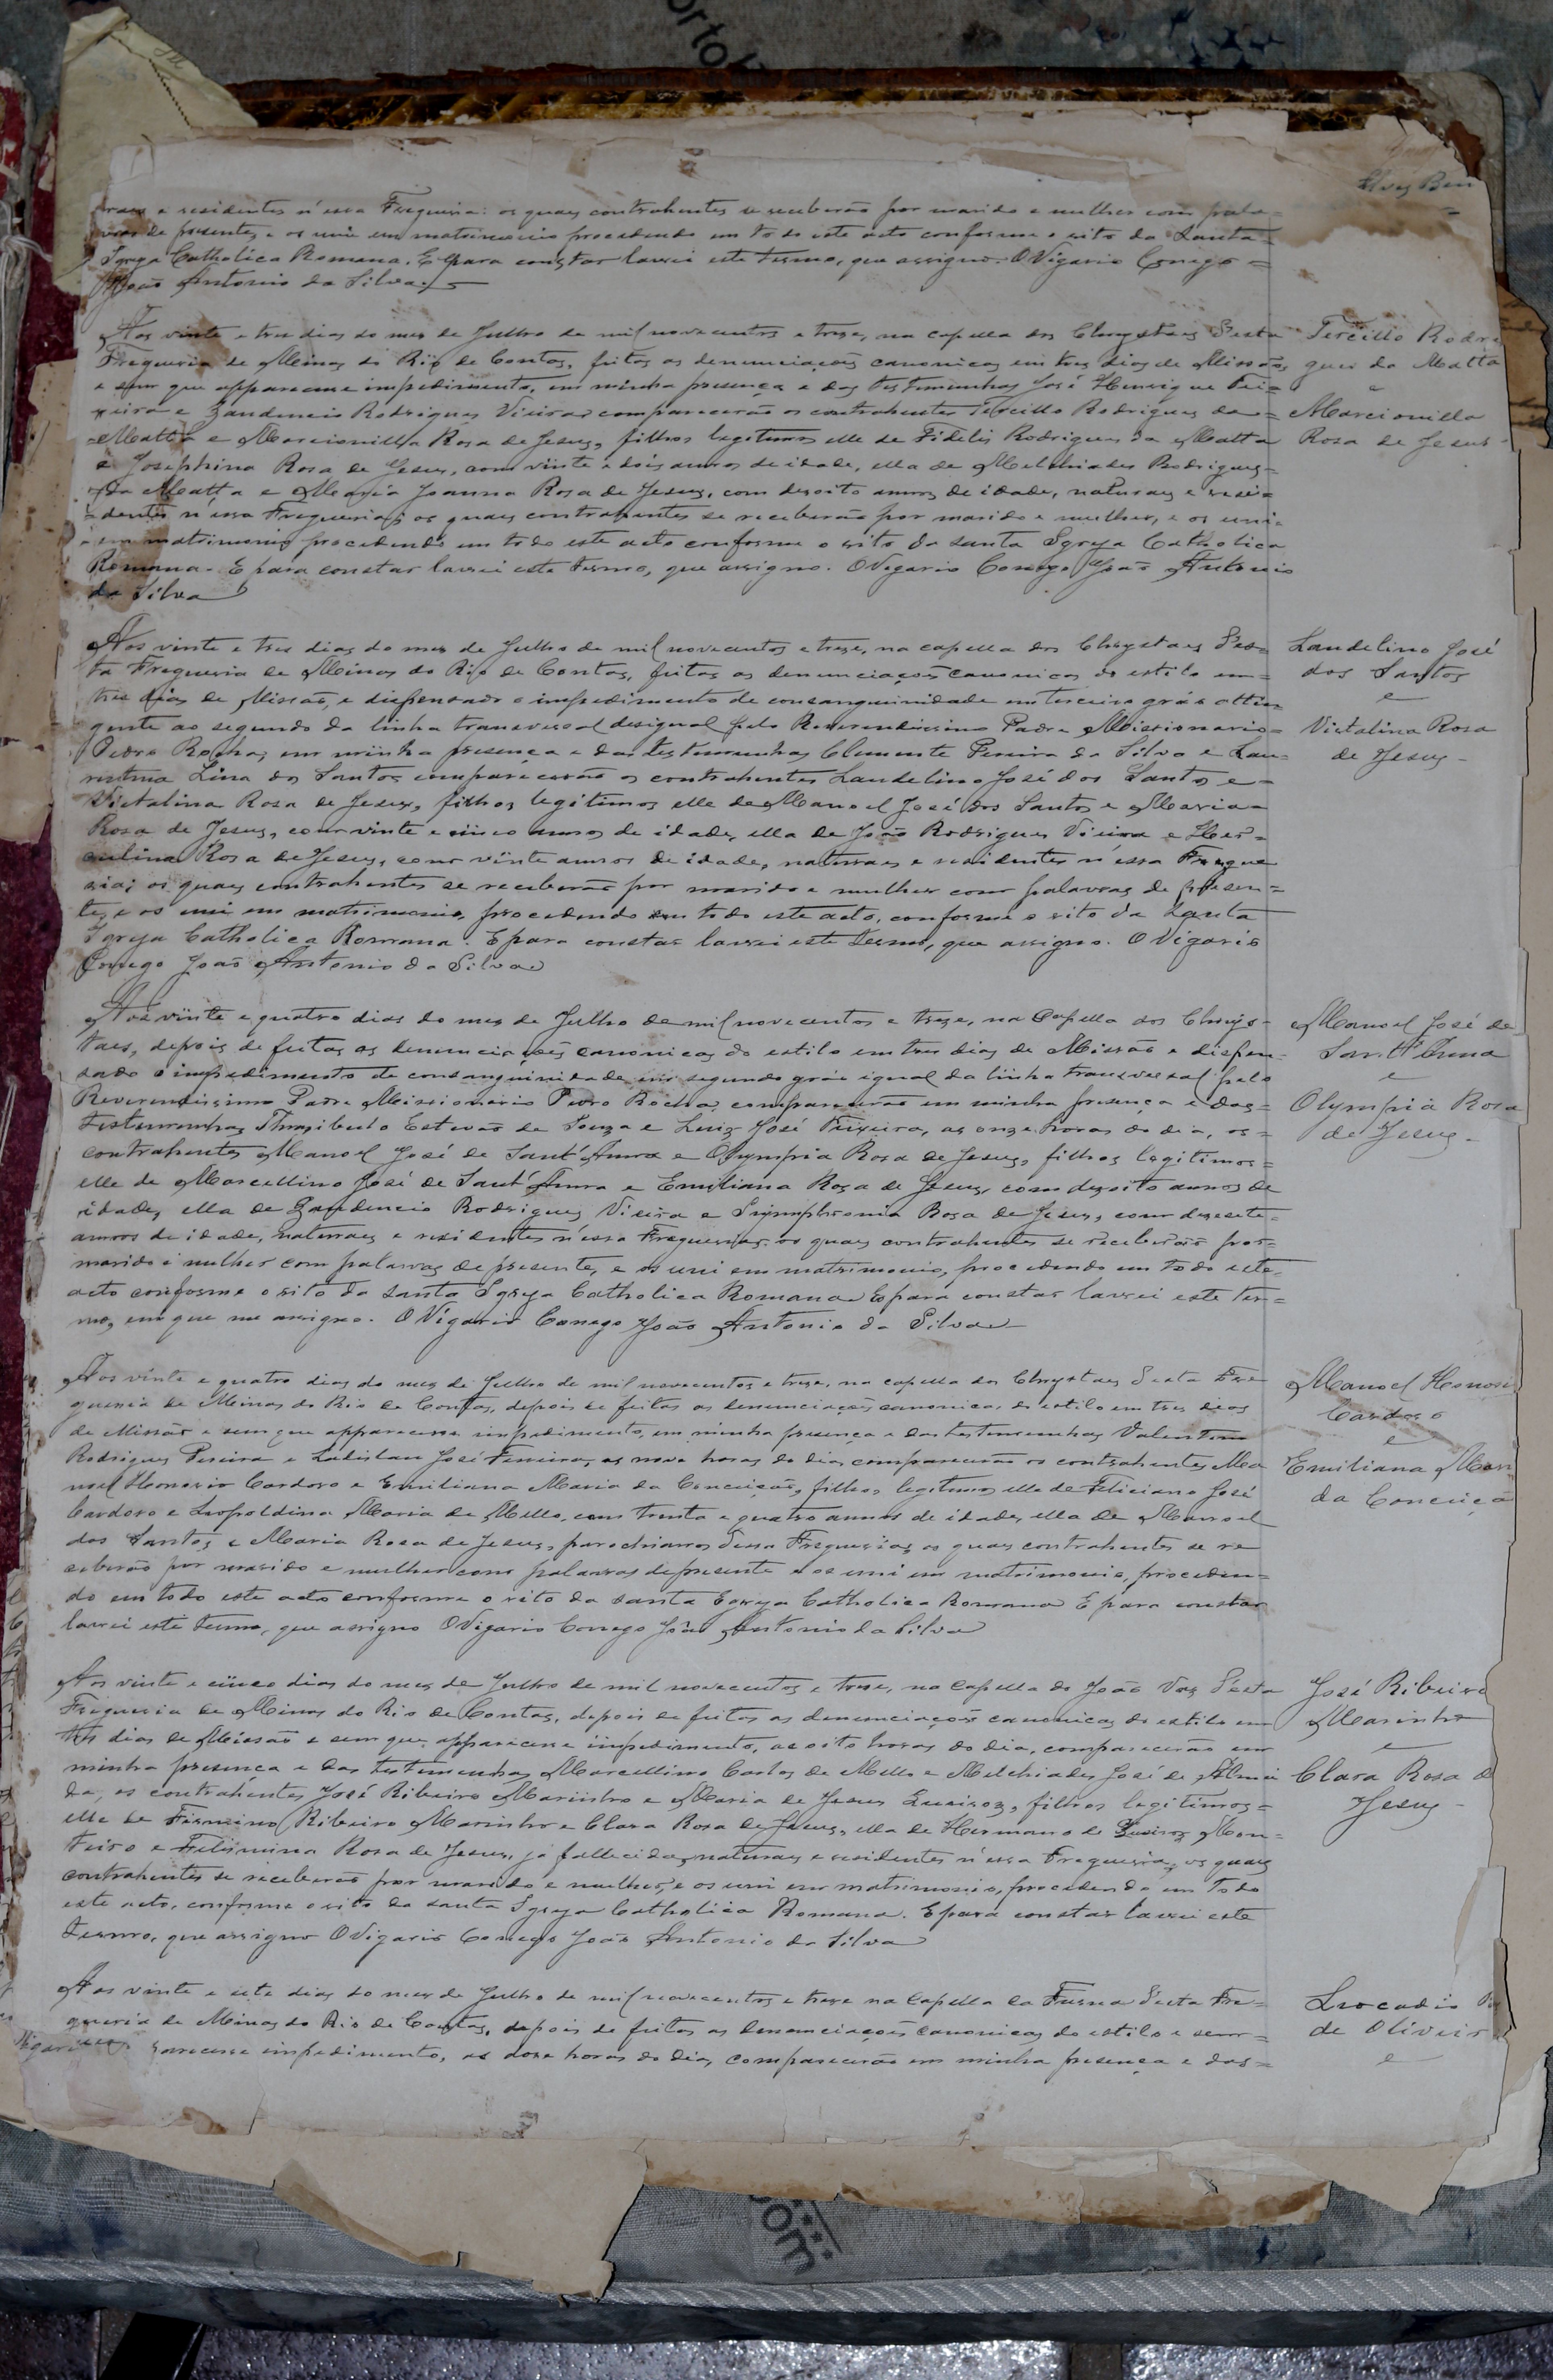 Alves Ben
raes e residentes n'essa Freguesia: os quaes contrahentes se receberão por marido e mulher com pala=
vras de presente, e os uni em matrimonio procedendo em todo este acto conforme o rito da Santa=
Igreja Catholica Romana. E para constar lavrei este termo, que assigno. O Vigario Conego=
João Antonio da Silva.
Aos vinte e tres dias do mes de Julho de mil novecentos e treze, na capella dos Chrystaes d'esta
Freguesia de Minas do Rio de Contas, feitas as denunciações canonicas em tres dias de Missão,
e sem que apparecesse impedimento, em minha presença e das testimunhas José Henrique Tei=
xeira e Gaudencio Rodrigues Vieira comparecerão os contrahentes Tercillo Rodrigues da=
Matta e Marcionilla Rosa de Jesus, filhos legitimos elle de Fidelis Rodrigues da Matta
e Josephina Rosa de Jesus, com vinte e dois annos de idade, ella de Melchiades Rodrigues=
da Matta e Maria Joanna Rosa de Jesus, com desoito annos de idade, naturaes e resi=
dentes n'essa Freguesia; os quaes contrahentes se receberão por marido e mulher, e os uni=
em matrimonio procedendo em todo este acto conforme o rito da santa Igreja Catholica
Romana. E para constar lavrei este termo, que assigno. O Vigario Conego João Antonio
da Silva
Tercillo Rodri
gues da Matta
e
Marcionilla
Rosa de Jesus
Aos vinte e tres dias do mes de Julho de mil novecentos e treze, na capella dos Chrystaes d'es=
ta Freguesia de Minas do Rio de Contas, feitas as denunciações canonicas do estilo em=
tres dias de Missão, e dispensado o impedimento de consanguinidade em terceiro gráo attin
gente ao segundo da linha transversal desigual pelo Reverendissimo Padre Missionario=
Pedro Rocha, em minha presença e das testemunhas Clemente Pereira da Silva e Lau=
rentina Lina dos Santos comparecerão os contrahentes Landelino José dos Santos e=
Victalina Rosa de Jesus, filhos legitimos elle de Manoel José dos Santos e Maria=
Rosa de Jesus, com vinte e cinco annos de idade, ella de João Rodrigues Vieira e Her=
culina Rosa de Jesus, com vinte annos de idade, naturaes e residentes n'essa Fregue
sia; os quaes contrahentes se receberão por marido e mulher com palavras de presen=
te, e os uni em matrimonio, procedendo em todo este acto, conforme o rito da Santa
Igreja Catholica Romana. E para constar lavrei este termo, que assigno. O Vigario
Conego João Antonio da Silva
Landelino José
dos Santos
e
Victalina Rosa
de Jesus
Aos vinte e quatro dias do mes de Julho de mil novecentos e treze, na Capella dos Chrys-
taes, depois de feitas as denunciações canonicas do estilo em tres dias de Missão e dispen-
sado o impedimento de consanguinidade em segundo gráo igual da linha transversal pelo
Reverendissimo Padre Missionario Pedro Rocha, comparecerão em minha presença e das=
testemunhas Thrasibulo Estevão de Souza e Luiz José Teixeira, as onze horas do dia, os=
contrahentes Manoel José de Sant'Anna e Olympia Rosa de Jesus, filhos legitimos=
elle de Marcellino José de Sant'Anna e Emiliana Rosa de Jesus, com desoito annos de
idade, ella de Gaudencio Rodrigues Vieira e Symphronia Rosa de Jesus, com desesete=
annos de idade, naturaes e residentes n'essa Freguesia: os quaes contrahentes se receberão por=
marido e mulher com palavras de presente, e os uni em matrimonio, procedendo em todo este
acto conforme o rito da santa Igreja Catholica Romana. E para constar lavrei este ter=
mo, em que me assigno. O Vigario Conego João Antonio da Silva
Manoel José de
Sant'Anna
e
Olympia Rosa
de Jesus
Aos vinte e quatro dias do mes de Julho de mil novecentos e treze, na capella dos Chrystaes d'esta Fre
guesia de Minas do Rio de Contas, depois de feitas as denunciações canonicas do estilo em tres dias
de Missão e sem que apparecesse impedimento, em minha presença e das testemunhas Valentim
Rodrigues Pereira e Ladislau José Ferreira, as nove horas do dia, comparecerão os contrahentes Ma
noel Honorio Cardoso e Emiliana Maria da Conceição, filhos legitimos elle de Feliciano José
Cardoso e Leopoldina Maria de Mello, com trinta e quatro annos de idade, ella de Manoel
dos Santos e Maria Rosa de Jesus, parochianos dessa Freguesia, os quaes contrahentes se re
ceberão por marido e mulher com palavras de presente e os uni em matrimonio, proceden=
do em todo este acto conforme o rito da santa Egreja Catholica Romana E para constar
lavrei este termo, que assigno O Vigario Conego João Antonio da Silva
Manoel Honori
Cardoso
e
Emiliana Mari
da Conceiçã
Aos vinte e cinco dias do mes de Julho de mil novecentos e treze, na Capella do João Vaz d'esta
Freguesia de Minas do Rio de Contas, depois de feitas as denunciações canonicas do estilo em
tres dias de Missão e sem que apparecesse impedimento, as oito horas do dia, comparecerão em
minha presença e das testemunhas Marcellino Carlos de Mello e Melchiades José de Almei
da, os contrahentes José Ribeiro Marinho e Maria de Jesus Queiroz, filhos legitimos=
elle de Firmino Ribeiro Marinho e Clara Rosa de Jesus, ella de Hermano de Queiroz Mon=
teiro e Felismina Rosa de Jesus, já fallecida, naturaes e residentes n'essa Freguesia, os quaes
contrahentes se receberão por marido e mulher, e os uni em matrimonio, procedendo em todo
este acto, conforme o rito da santa Igreja Catholica Romana. E para constar lavrei este
termo, que assigno O Vigario Conego João Antonio da Silva
José Ribeiro
Marinho
e
Clara Rosa d
Jesus
Aos vinte e sete dias do mes de Julho de mil novecentos e treze na Capella da Furna d'esta Fre=
guesia de Minas do Rio de Contas, depois de feitas as denunciações canonicas do estilo e sem=
parecesse impedimento, as doze horas do dia, comparecerão em minha presença e das=
Leocadio
de Oliveir
e